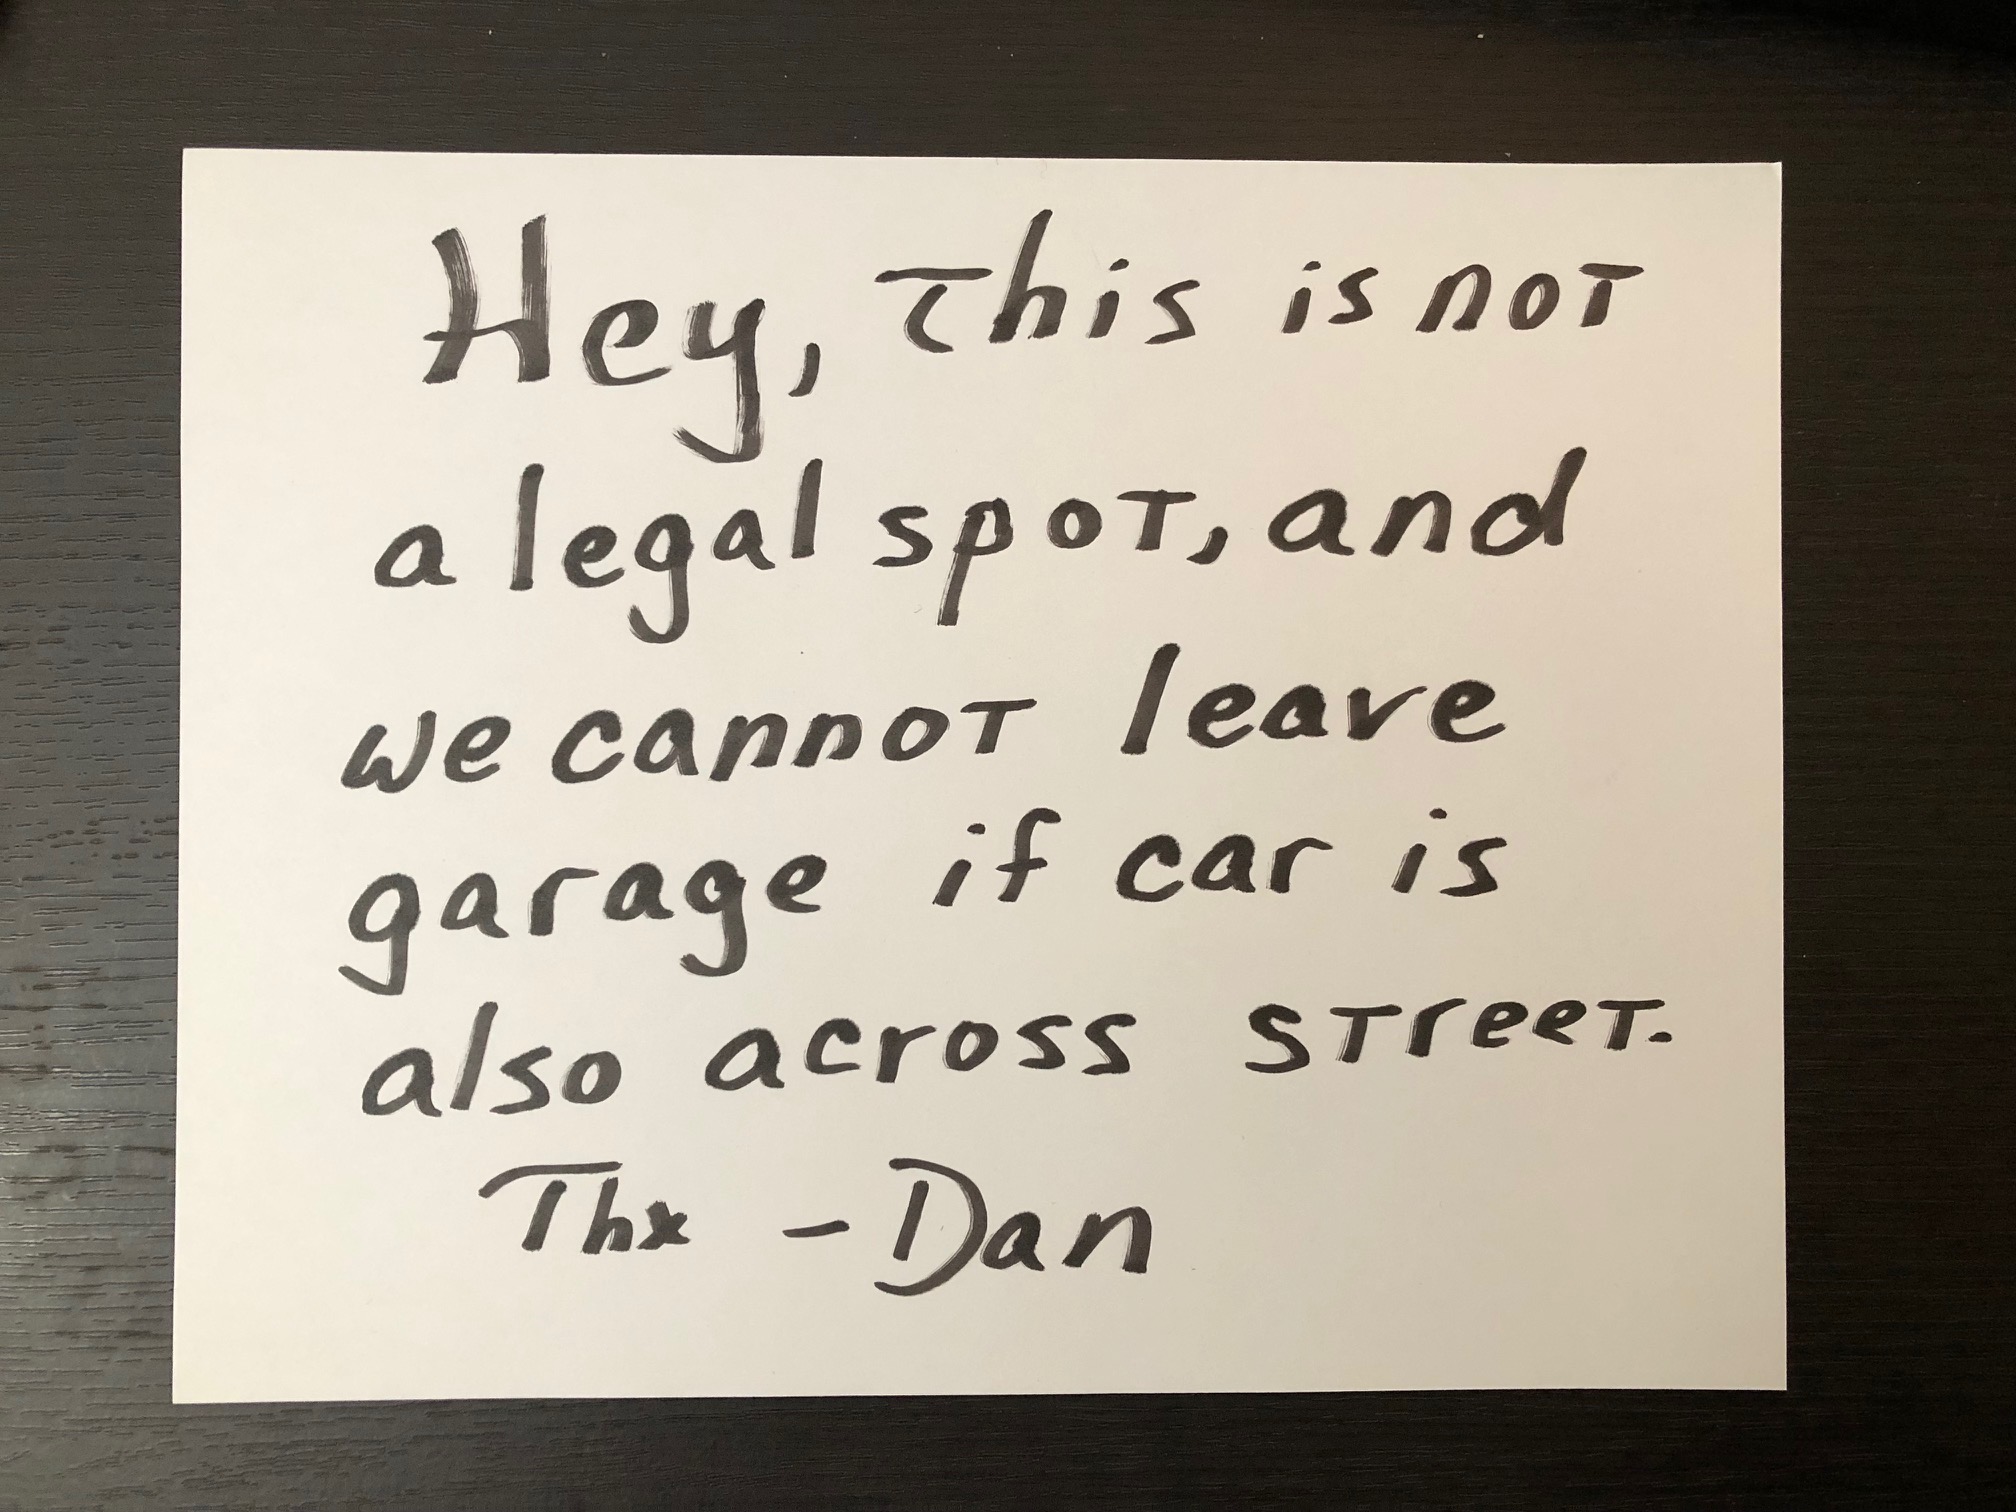 Hey, this is not
a legal spot, and
we cannot leave
garage if car is
also across street.
Thx - Dan